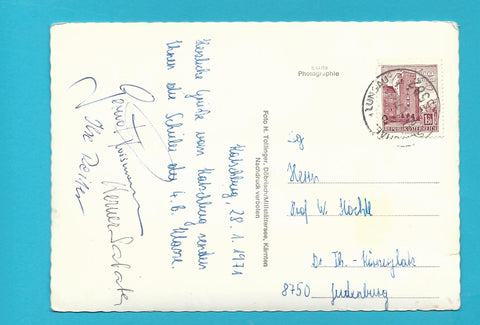 Katschberg, 28.1.1971
Herzliche Grüße vom Katschberg senden
Ihnen die Schüler der 4.b. Klasse.
Echte
Photographie
Foto H. Tollinger, Döbriach/Millstättersee, Kärnten
Nachdruck verboten
REPUBLIK ÖSTERREICH
LUNGAU
Herrn
Prof W.
Dr. Th.-
8750 Judenburg